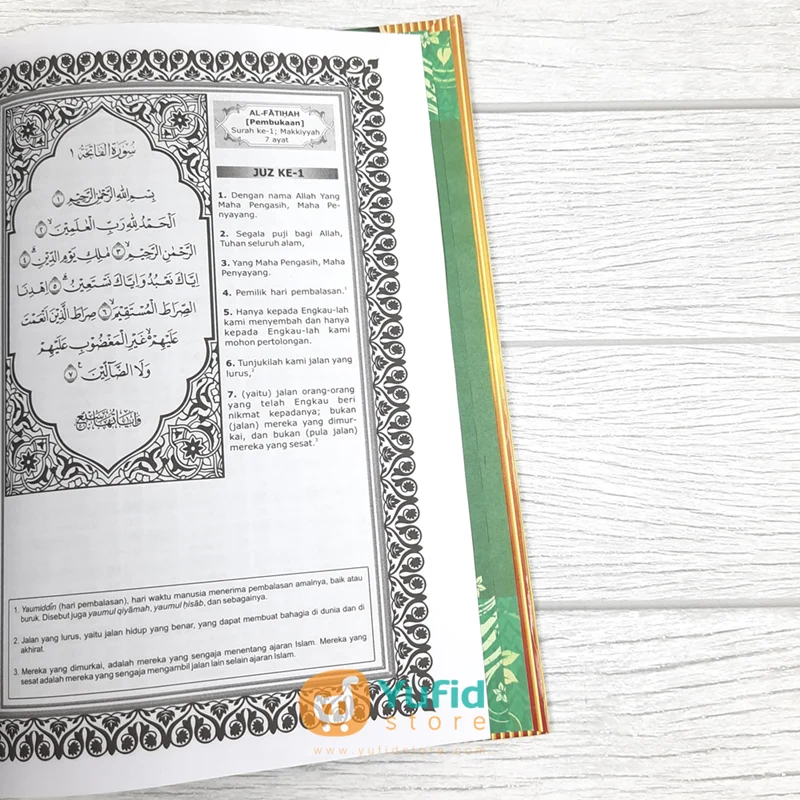 سُورَةُ الْفَاتِحَةِ ١
بِسْمِ اللّٰهِ الرَّحْمٰنِ الرَّحِيْمِ ١
اَلْحَمْدُ لِلّٰهِ رَبِّ الْعٰلَمِيْنَۙ ٢
الرَّحْمٰنِ الرَّحِيْمِۙ ٣ مٰلِكِ يَوْمِ الدِّيْنِۗ ٤
اِيَّاكَ نَعْبُدُ وَاِيَّاكَ نَسْتَعِيْنُۗ ٥ اِهْدِنَا
الصِّرَاطَ الْمُسْتَقِيْمَۙ ٦ صِرَاطَ الَّذِيْنَ اَنْعَمْتَ
عَلَيْهِمْ ەۙ غَيْرِ الْمَغْضُوْبِ عَلَيْهِمْ
وَلَا الضَّاۤلِّيْنَ ࣖ ٧
AL-FĀTIḤAH
[Pembukaan]
Surah ke-1; Makkiyyah
7 ayat
JUZ KE-1
1. Dengan nama Allah Yang
Maha Pengasih, Maha Pe-
nyayang.
2. Segala puji bagi Allah,
Tuhan seluruh alam,
3. Yang Maha Pengasih, Maha
Penyayang.
4. Pemilik hari pembalasan.¹
5. Hanya kepada Engkau-lah
kami menyembah dan hanya
kepada Engkau-lah kami
mohon pertolongan.
6. Tunjukilah kami jalan yang
lurus,²
7. (yaitu) jalan orang-orang
yang telah Engkau beri
nikmat kepadanya; bukan
(jalan) mereka yang dimur-
kai, dan bukan (pula jalan)
mereka yang sesat.³
1. Yaumiddīn (hari pembalasan), hari waktu manusia menerima pembalasan amalnya, baik atau
buruk. Disebut juga yaumul qiyāmah, yaumul ḥisāb, dan sebagainya.
2. Jalan yang lurus, yaitu jalan hidup yang benar, yang dapat membuat bahagia di dunia dan di
akhirat.
3. Mereka yang dimurkai, adalah mereka yang sengaja menentang ajaran Islam. Mereka yang
sesat adalah mereka yang sengaja mengambil jalan lain selain ajaran Islam.
Yufid
store
www.yufidstore.com